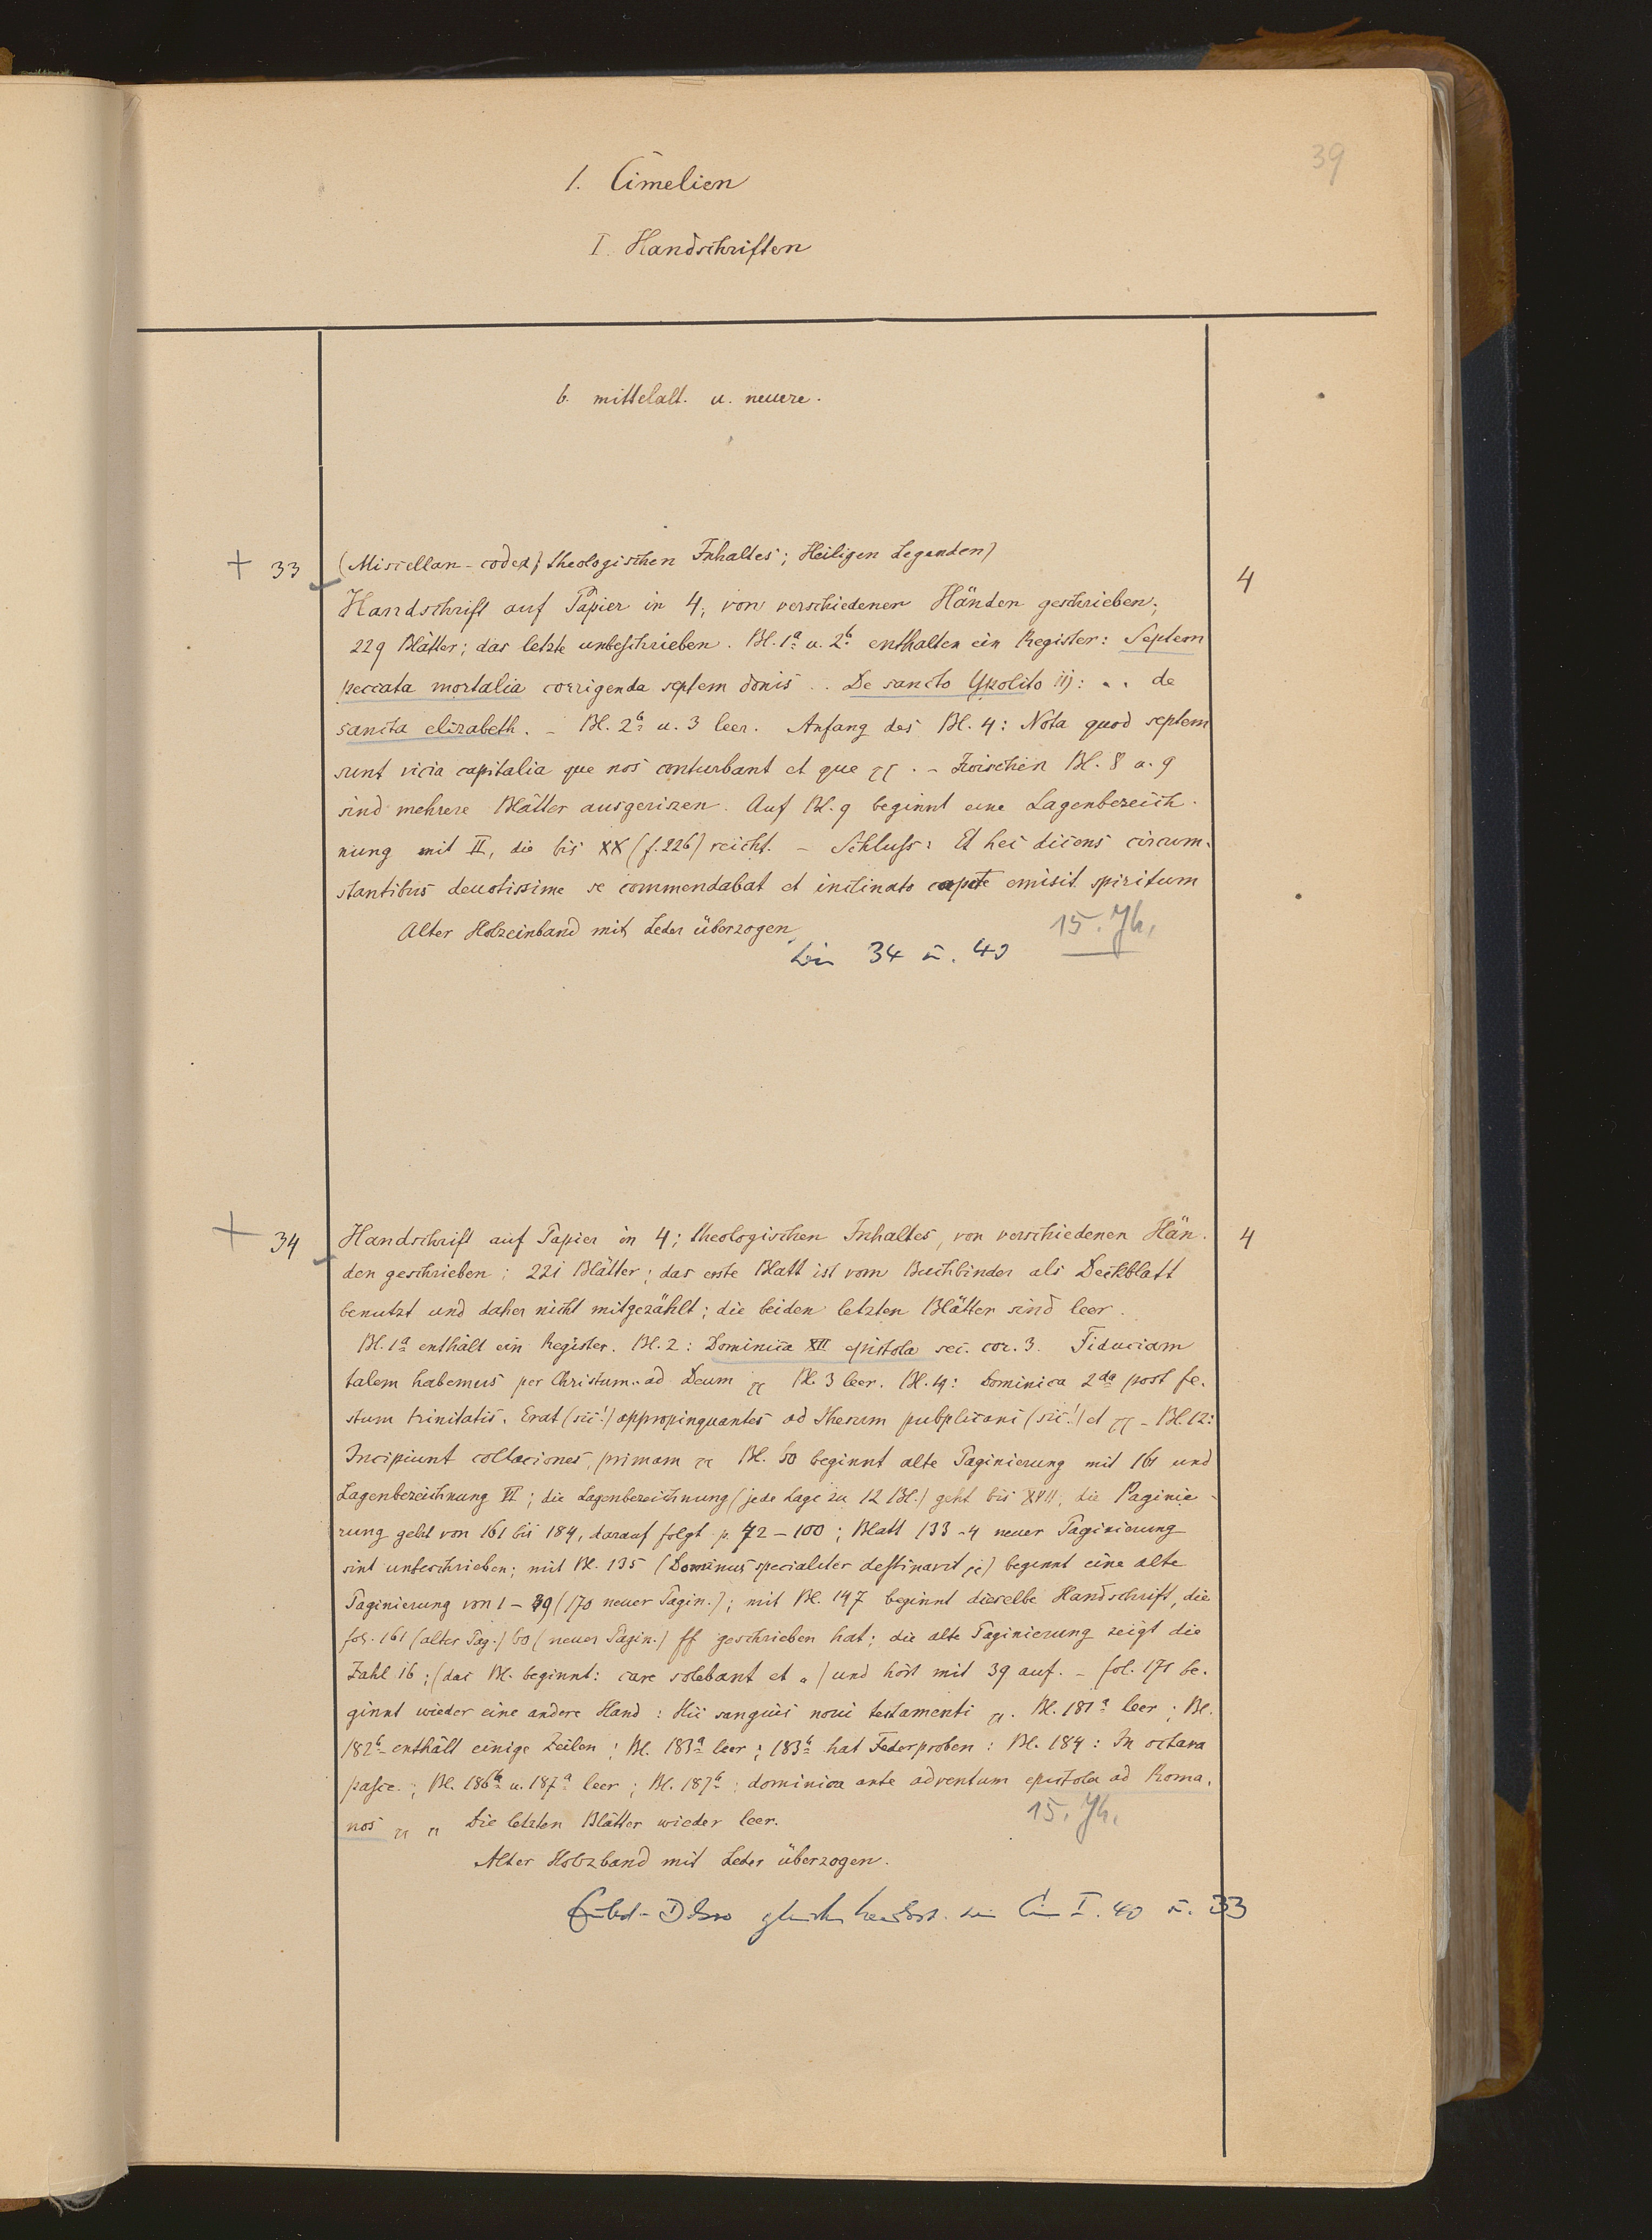 39
1. Cimelien
I. Handschriften
b. mittelalt. u. neuere.
+ 33 (Miscellan-codex) theologischen Inhaltes; Heiligen Legenden) 4
Handschrift auf Papier in 4, von verschiedenen Händen geschrieben;
229 Blätter; das letzte unbeschrieben. Bl. 1a u. 2b enthalten ein Register: Septem
peccata mortalia corrigenda septem donis .. De sancto Ypolito iij: .. de
sancta elizabeth. – Bl. 2b u. 3 leer. Anfang des Bl. 4: Nota quod septem
sunt vicia capitalia que nos conturbant et que . – Zwischen Bl. 8 u. 9
sind mehrere Blätter ausgerissen. Auf Bl. 9 beginnt eine Lagenbezeich-
nung mit II, die bis XX (f. 226) reicht. – Schluss: Et hec dicens circum-
stantibus deuotissime se commendabat et inclinato capite emisit spiritum
Alter Holzeinband mit Leder überzogen
15. Jh.
34 u. 40
+ 34 Handschrift auf Papier in 4; theologischen Inhaltes, von verschiedenen Hän- 4
den geschrieben; 221 Blätter; das erste Blatt ist vom Buchbinder als Deckblatt
benutzt und daher nicht mitgezählt; die beiden letzten Blätter sind leer.
Bl. 1a enthält ein Register. Bl. 2: Dominica XII epistola sec. cor. 3. Fiduciam
talem habemus per Christum ad Deum Bl. 3 leer. Bl. 4: Dominica 2da post fe-
stum trinitatis. Erat (sic!) appropinquantes ad Ihesum pubplicani (sic!) et – Bl. 12:
Incipiunt collaciones, primam Bl. 60 beginnt alte Paginierung mit 161 und
Lagenbezeichnung VI; die Lagenbezeichnung (jede Lage zu 12 Bl.) geht bis XVII, die Paginie-
rung geht von 161 bis 184, darauf folgt p. 72 – 100; Blatt 133-4 neuer Paginierung
sint unbeschrieben; mit Bl. 135 (Dominus specialiter destinavit) beginnt eine alte
Paginierung von 1 – 39 (170 neuer Pagin.); mit Bl. 147 beginnt dieselbe Handschrift, die
fol. 161 (alter Pag.) 60 (neuer Pagin.) ff geschrieben hat; die alte Paginierung zeigt die
Zahl 16; (das Bl. beginnt: care solebant et) und hört mit 39 auf. – fol. 171 be-
ginnt wieder eine andere Hand: Hic sanguis noui testamenti . Bl. 181a leer; Bl.
182b enthält einige Zeilen; Bl. 183a leer; 183b hat Federproben: Bl. 184: In octava
pasce.; Bl. 186b u. 187a leer; Bl. 187b: dominica ante adventum epistola ad Roma-
nos Die letzten Blätter wieder leer.
15. Jh.
Alter Holzband mit Leder überzogen.
I. 40 u. 33